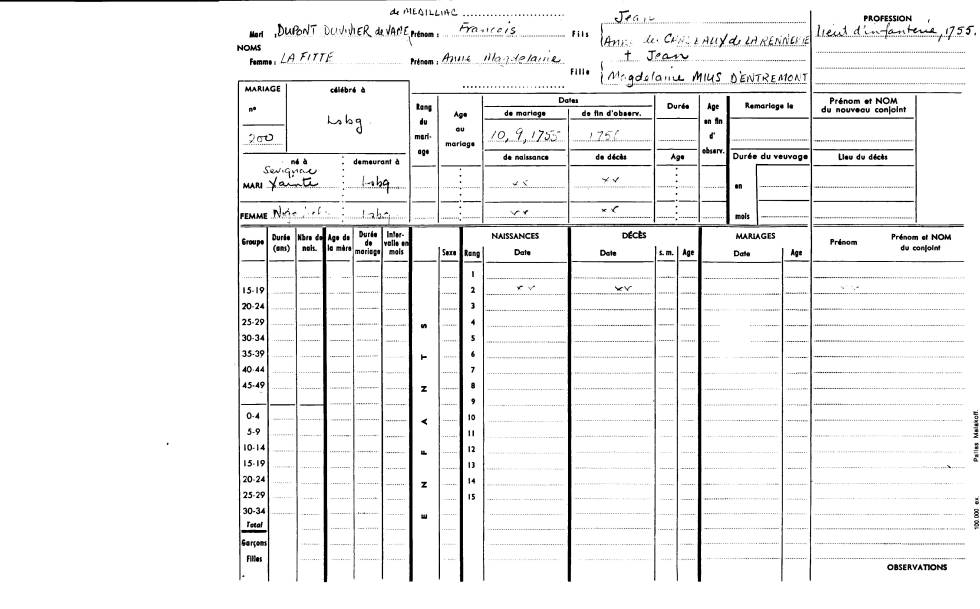 de MEDILLIAC
Mari DUPONT DUVIVIER de VAME Prénom : François Fils Jean
PROFESSION
NOMS
Anne de LA RENNERIE
lieut d'infanterie, 1755.
Femme : LA FITTE Prénom : Anne Magdelaine Fille † Jean
Magdelaine MIUS D'ENTREMONT
MARIAGE
n° célébré à
200 Lsbg.
Rang du mariage
Age au mariage
Dates
de mariage de fin d'observ.
10, 9, 1755
de naissance de décès
Durée
Age
Age en fin d' observ.
Remariage le
Durée du veuvage
en
mois
Prénom et NOM du nouveau conjoint
Lieu du décès
né à demeurant à
Sevignac
MARI Xainte Lsbg
FEMME Lsbg
Groupe Durée (ans) Nbre de nais. Age de la mère Durée de mariage Intervalle en mois Sexe Rang NAISSANCES Date DÉCÈS Date s. m. Age MARIAGES Date Age Prénom Prénom et NOM du conjoint
ENFANTS
1
15-19 2
20-24 3
25-29 4
30-34 5
35-39 6
40-44 7
45-49 8
9
0-4 10
5-9 11
10-14 12
15-19 13
20-24 14
25-29 15
30-34
Total
Garçons
Filles
OBSERVATIONS
100.000 ex. Pallas Malakoff.